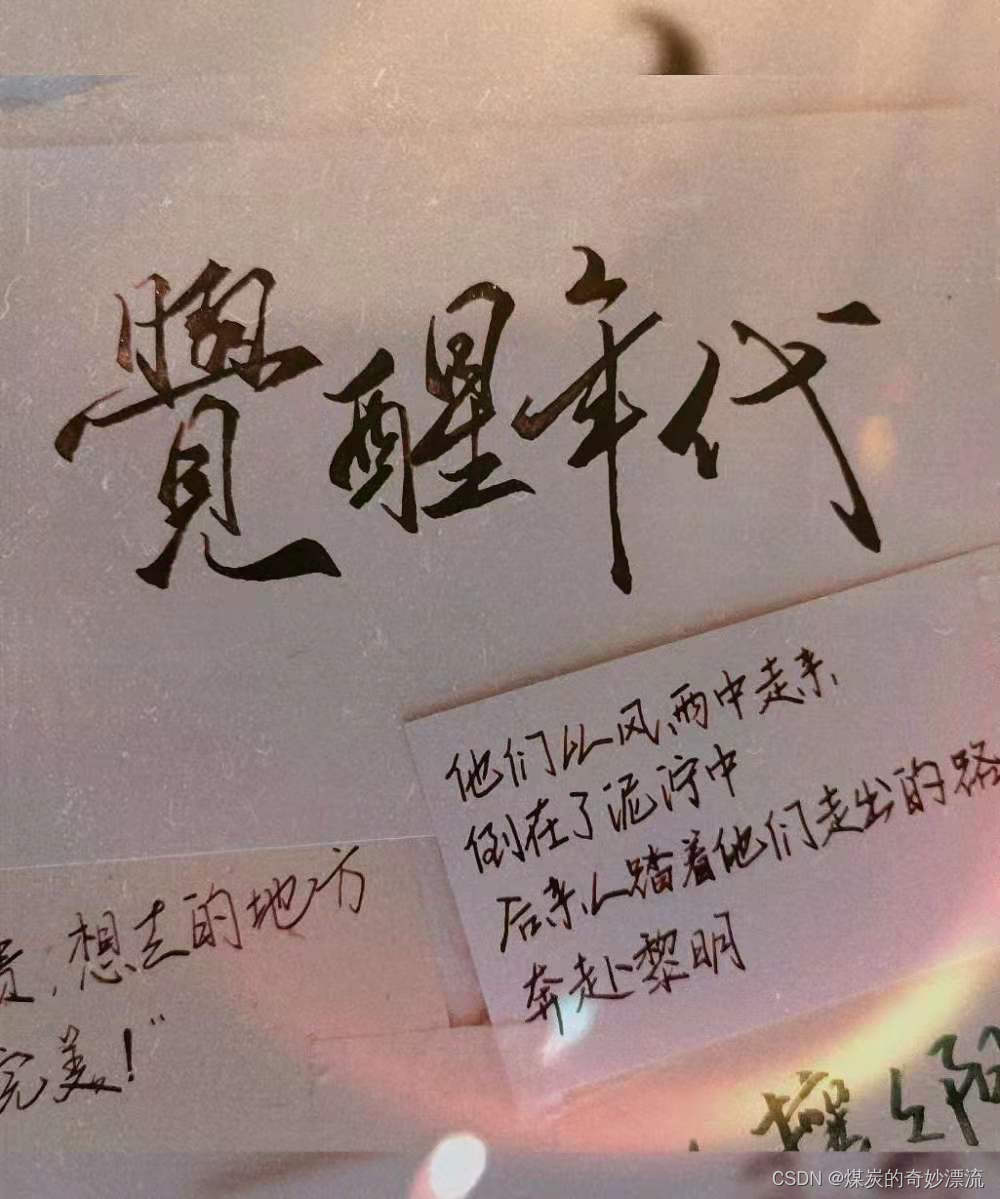 覺醒年代
他们从风雨中走来
倒在了泥泞中
后来人踏着他们走出的路
奔赴黎明
,想去的地方
完美!"
CSDN @煤炭的奇妙漂流